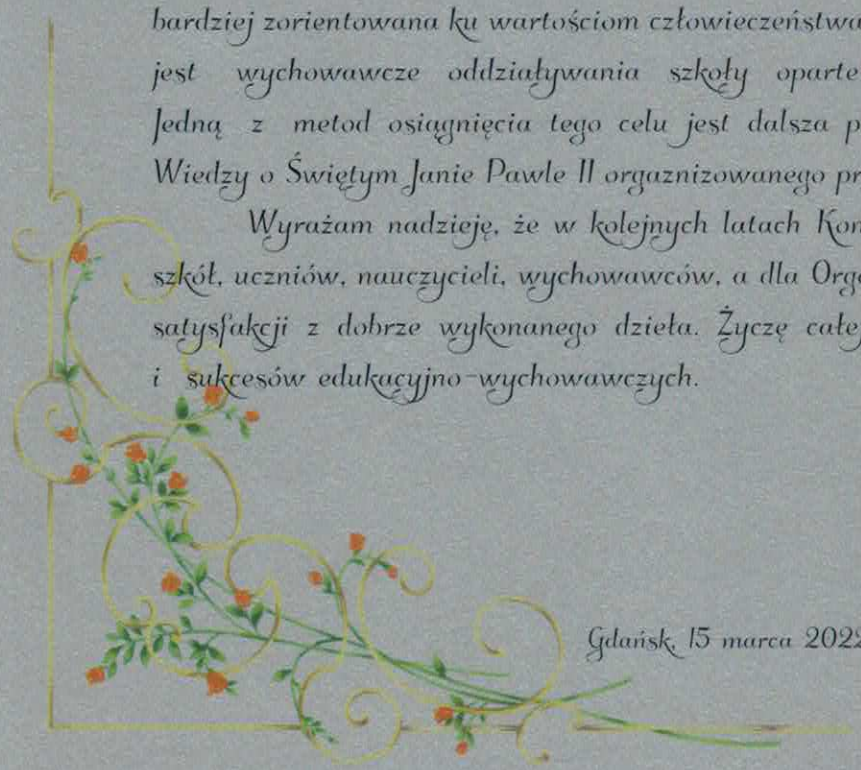 bardziej zorientowana ku wartościom człowieczeństwa
jest wychowawcze oddziaływania szkoły oparte
Jedną z metod osiągnięcia tego celu jest dalsza p
Wiedzy o Świętym Janie Pawle II orgaznizowanego pr
Wyrażam nadzieję, że w kolejnych latach Kon
szkół, uczniów, nauczycieli, wychowawców, a dla Orga
satysfakcji z dobrze wykonanego dzieła. Życzę całe
i sukcesów edukacyjno-wychowawczych.
Gdańsk, 15 marca 2022